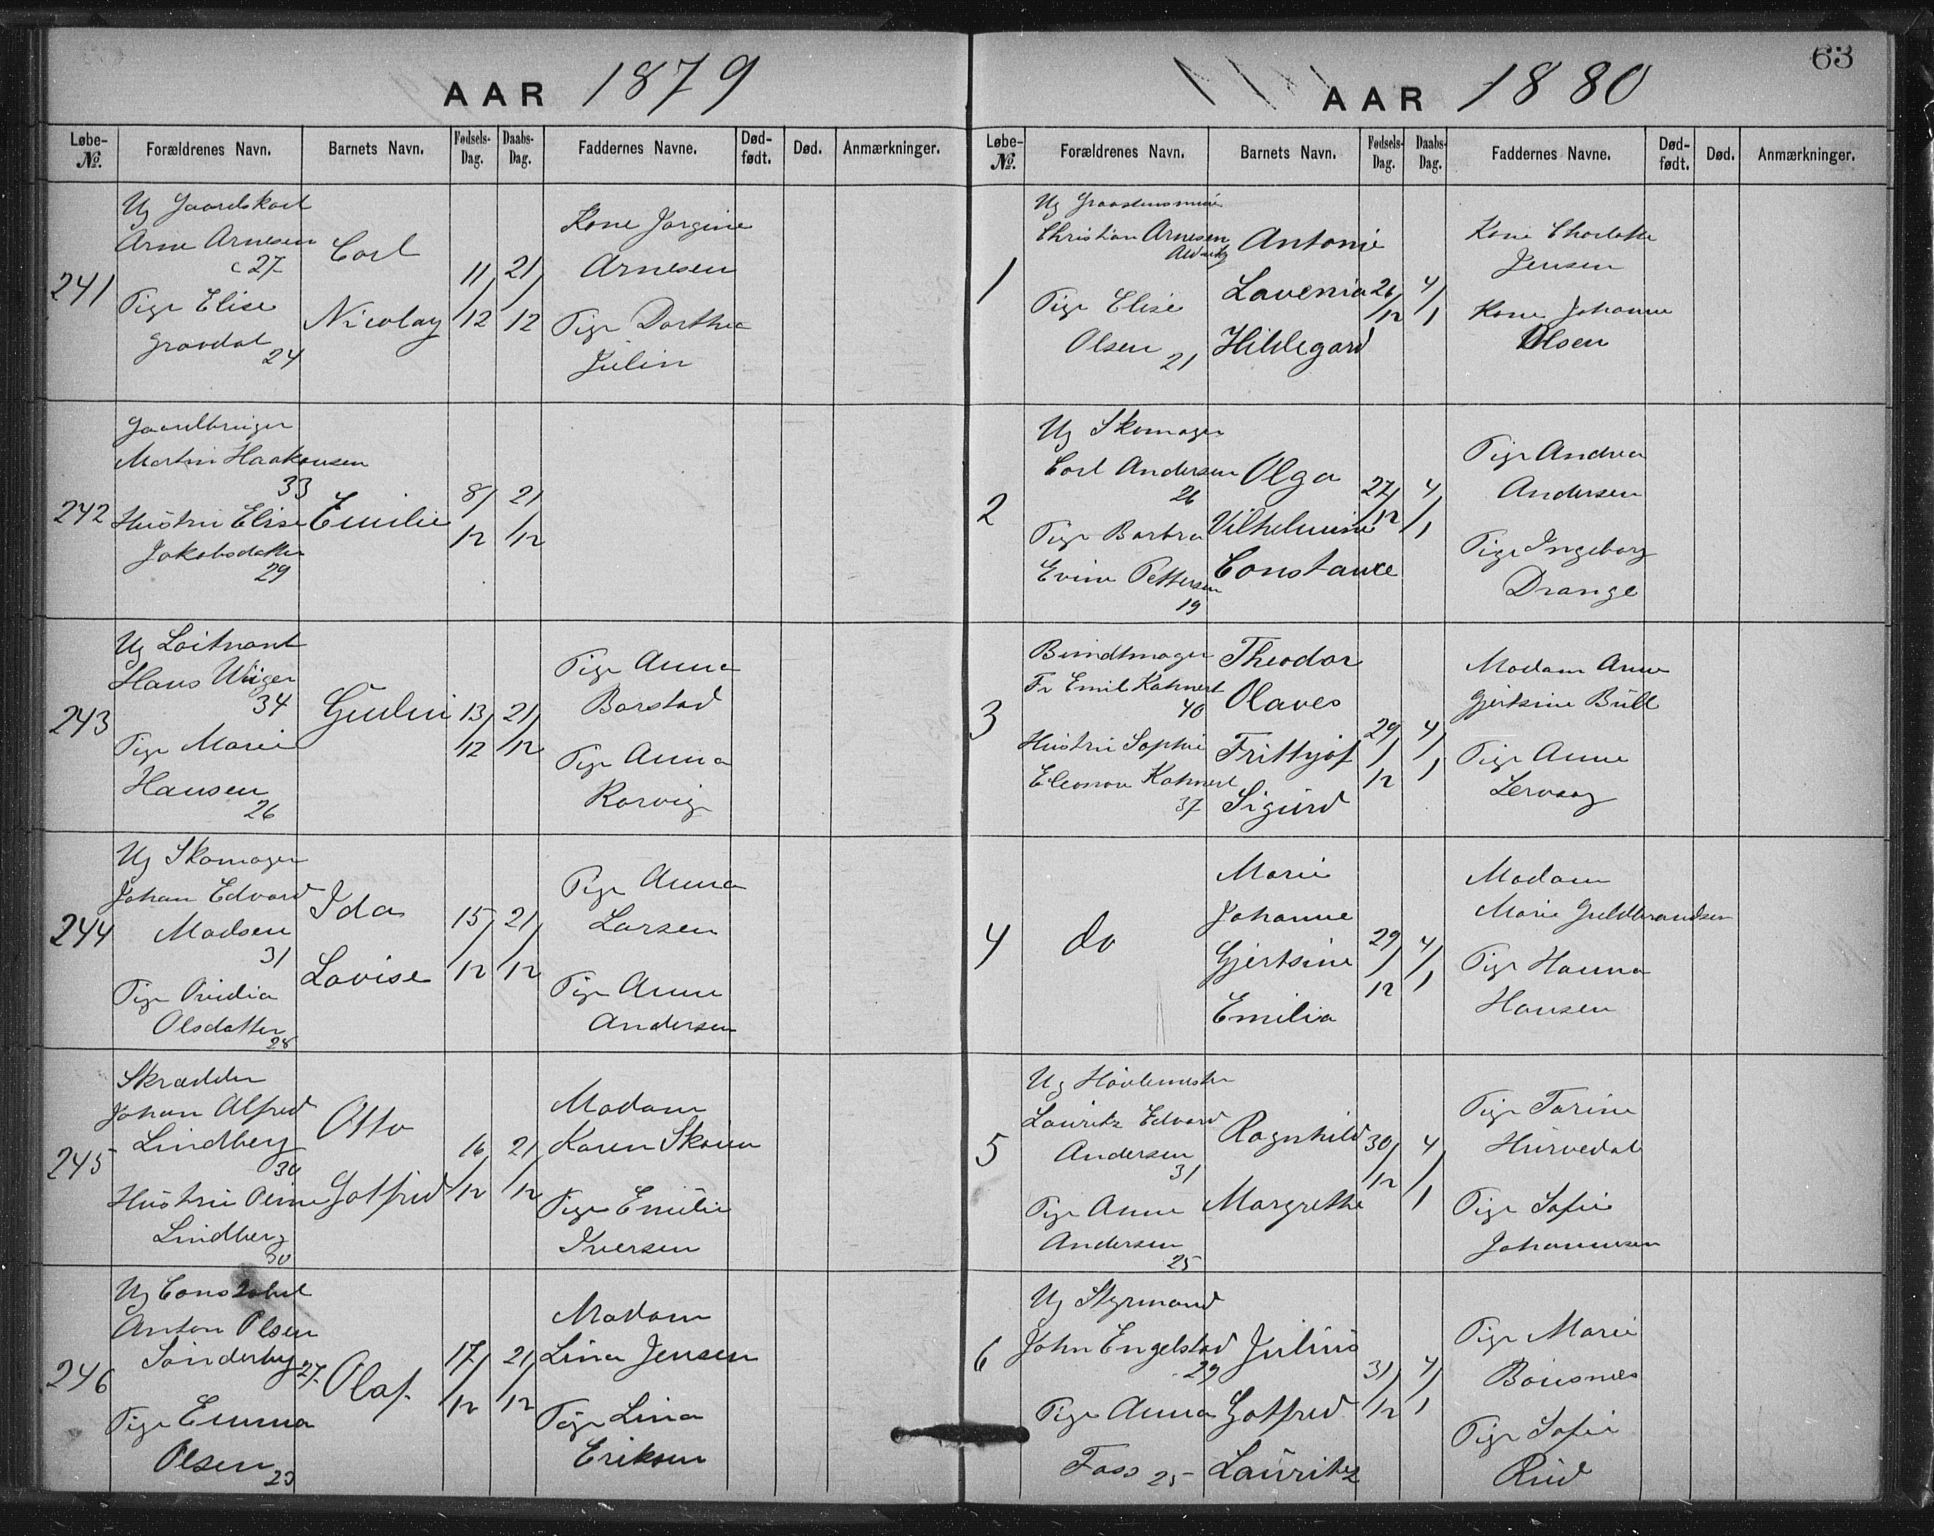 63
AAR 1879
Løbe-No. Forældrenes Navn. Barnets Navn. Fødsels-Dag. Daabs-Dag. Faddernes Navne. Død-født. Død. Anmærkninger.
241
Ug Gaardskarl
Arne Arnesen
c 27
Pige Elise
Gravdal
24
Carl
Nicolay
11/12
21/12
Kone Jorgine
Arnesen
Pige Dorthea
Julin
242
Gaardbruger
Martin Haakensen
33
Hustru Elise
Jakobsdatter
29
Emilie
8/12
21/12
243
Ug Loitnant
Hans Wiger
34
Pige Marie
Hansen
26
13/12
21/12
Pige Anna
Borstad
Pige Anna
Rorvig
244
Ug Skomager
Johan Edvard
Madsen
31
Pige Ovidia
Olsdatter
28
Ida
Lovise
15/12
21/12
Pige Anna
Larsen
Pige Anne
Andersen
245
Skrædder
Johan Alfred
Lindberg
30
Hustru
Lindberg
30
Otto
Gotfred
16/12
21/12
Madam
Karen Skouen
Pige Emilie
Iversen
246
Ug Constabel
Anton Olsen
Sønderby 27
Pige Emma
Olsen 23
Olaf
17/12
21/12
Madam
Lina Jensen
Pige Lina
Eriksen
AAR 1880
Løbe-No. Forældrenes Navn. Barnets Navn. Fødsels-Dag. Daabs-Dag. Faddernes Navne. Død-født. Død. Anmærkninger.
1
Ug
Christian Arnesen
Pige Elise
Olsen 21
Antonie
Lavenia
Hildegard
26/12
4/1
Kone Charlotte
Jensen
Kone Johanne
Olsen
2
Ug Skomager
Carl Andersen
26
Pige Barbra
Evine Pettersen
19
Olga
Vilhelmine
Constance
27/12
4/1
Pige Andrea
Andersen
Pige Ingeborg
Drange
3
Bundtmager
Fr Emil Kahnert
40
Hustru Sophie
Eleonora Kahnert
37
Theodor
Olaves
Frittjof
Sigurd
29/12
4/1
Madam Anne
Gjertsine Bull
Pige Anne
Lervaag
4
do
Marie
Johanne
Gjertsine
Emilia
29/12
4/1
Madam
Marie Guldbrandsen
Pige Hanna
Hansen
5
Ug Høvlemester
Lauritz Edvard
Andersen
31
Pige Anne
Andersen
25
Ragnhild
Margrethe
30/12
4/1
Pige Torine
Hurvedal
Pige Sofie
Johannesen
6
Ug Styrmand
John Engelstad
29
Pige Anna
Foss 25
Julius
Gotfred
Lauritz
31/12
4/1
Pige Marie
Pige Sofie
Rud